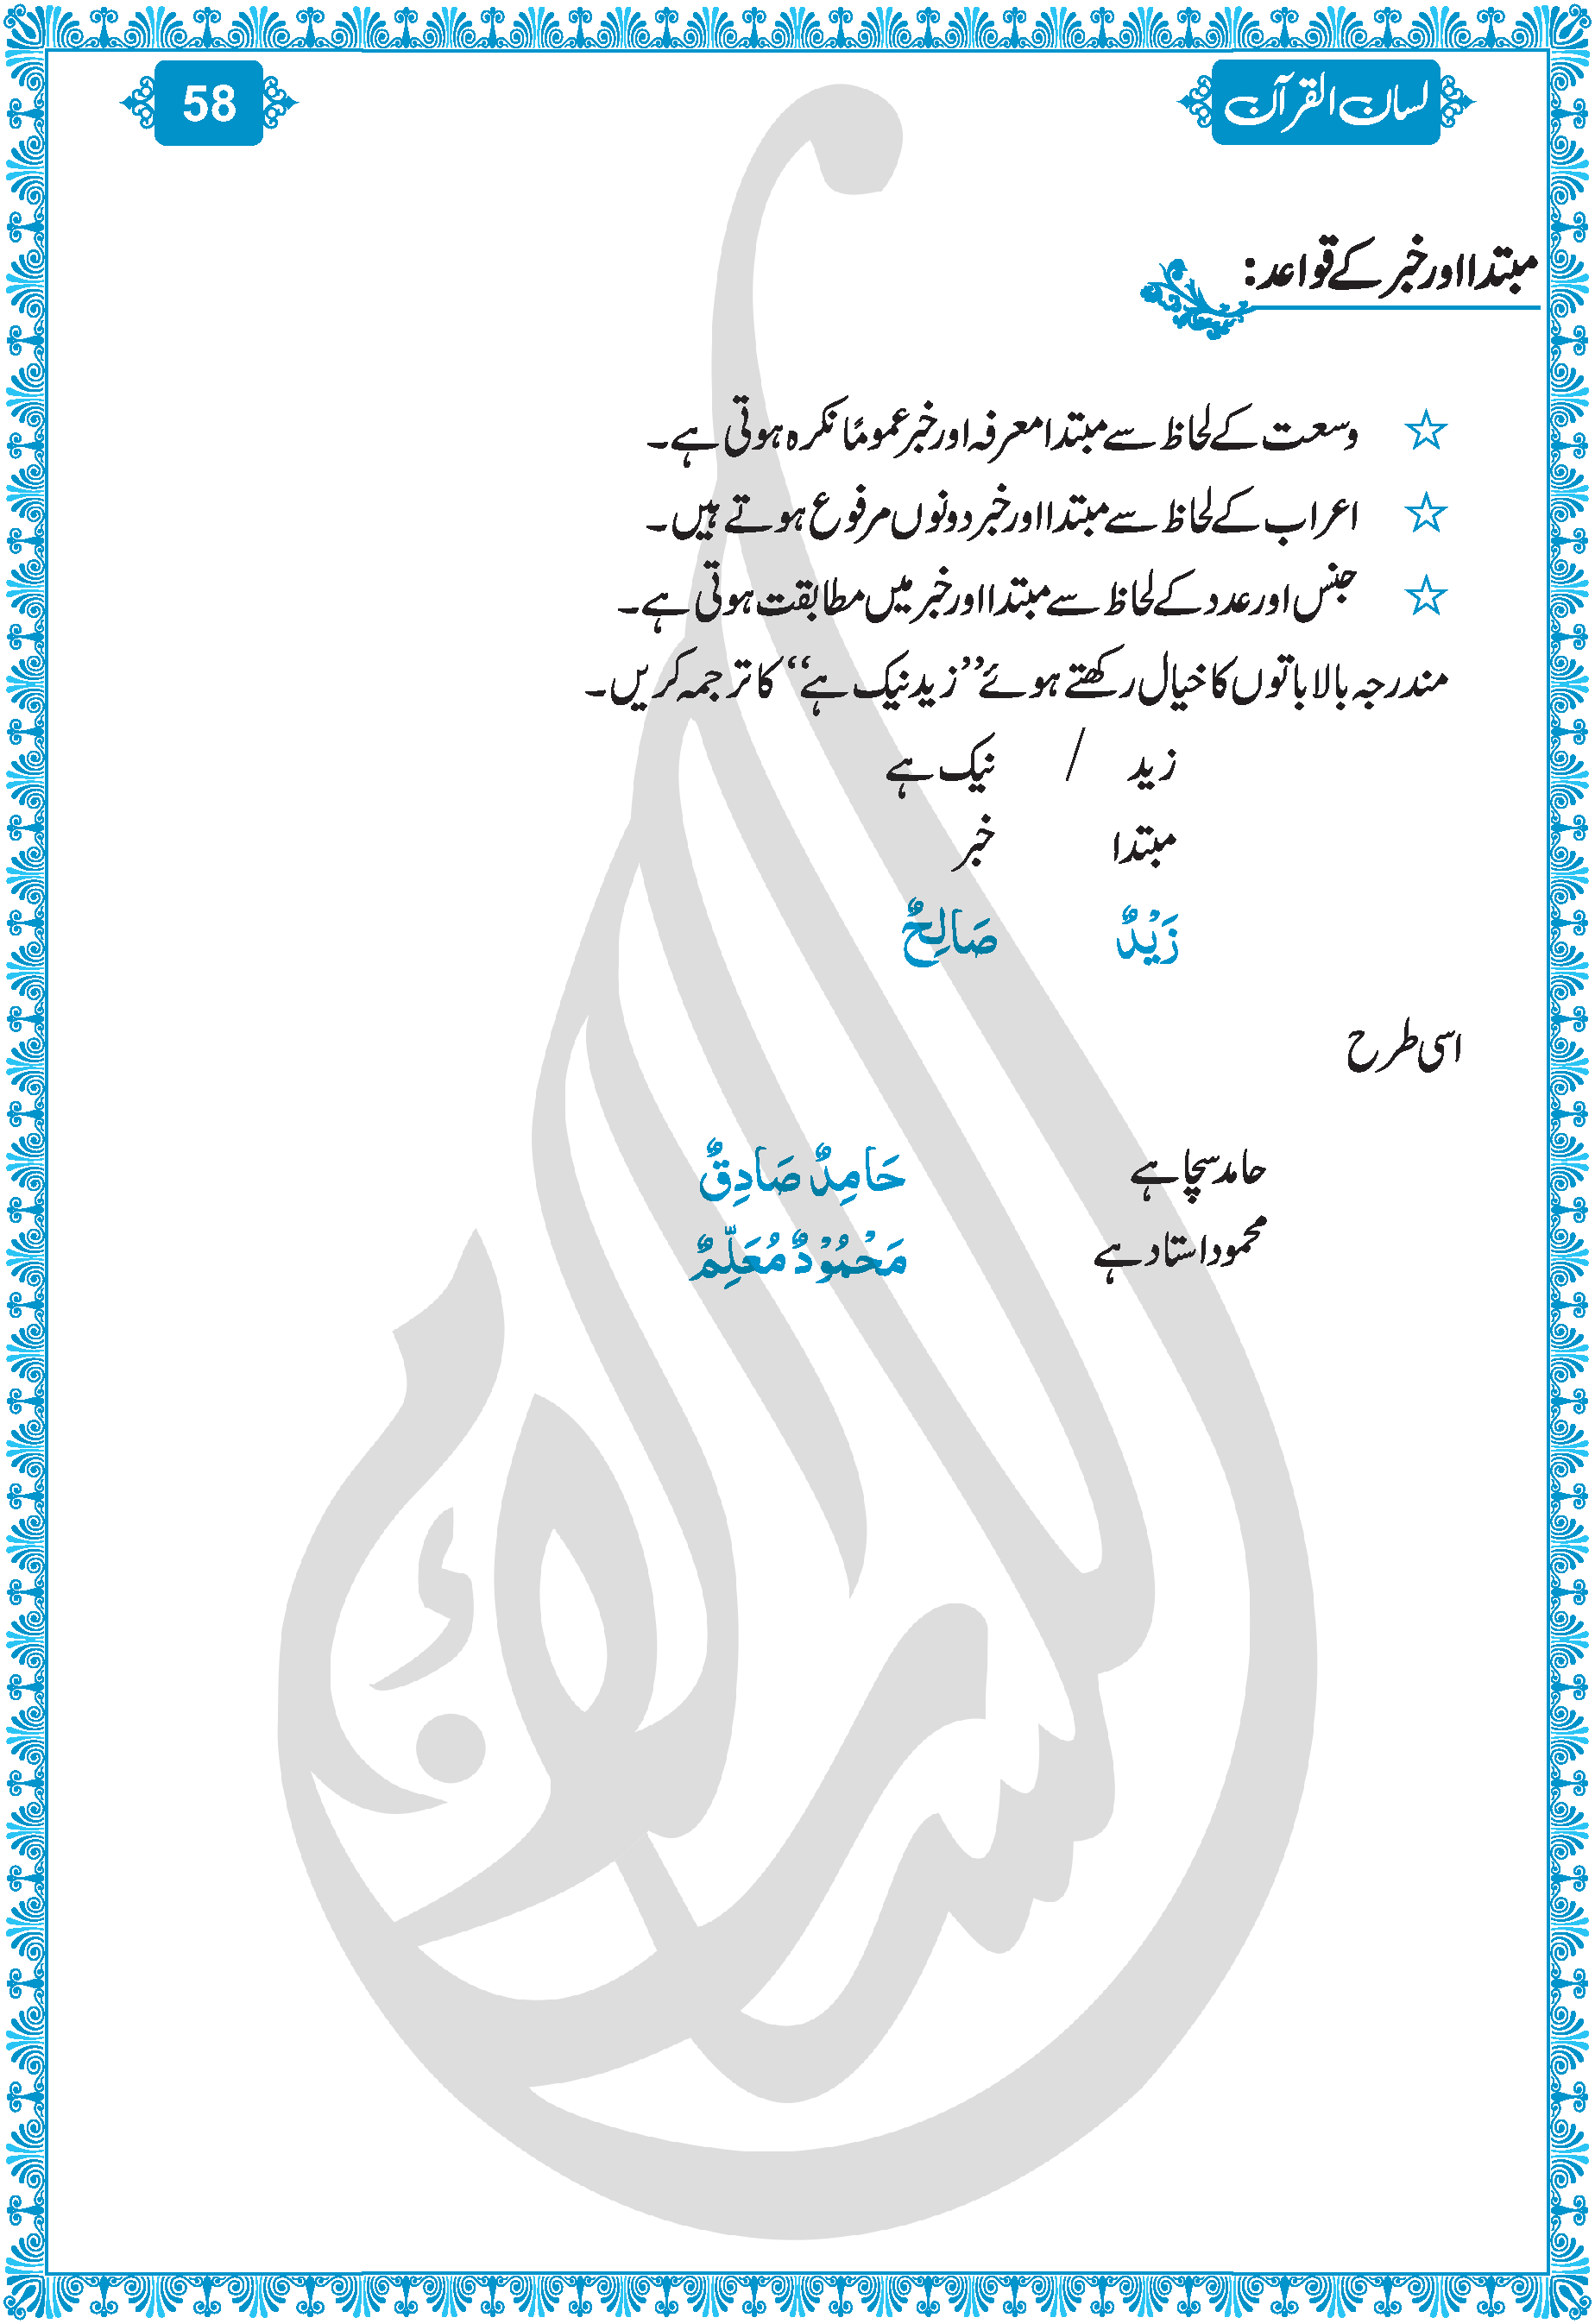 لسان القرآن
58
مبتدا اور خبر کے قواعد:
☆ وسعت کے لحاظ سے مبتدا معرفہ اور خبر عموماً نکرہ ہوتی ہے۔
☆ اعراب کے لحاظ سے مبتدا اور خبر دونوں مرفوع ہوتے ہیں۔
☆ جنس اور عدد کے لحاظ سے مبتدا اور خبر میں مطابقت ہوتی ہے۔
مندرجہ بالا باتوں کا خیال رکھتے ہوئے ’’زید نیک ہے‘‘ کا ترجمہ کریں۔
زید / نیک ہے
مبتدا خبر
زَيْدٌ صَالِحٌ
اسی طرح
حامد سچا ہے حَامِدٌ صَادِقٌ
محمود استاد ہے مَحْمُوْدٌ مُعَلِّمٌ